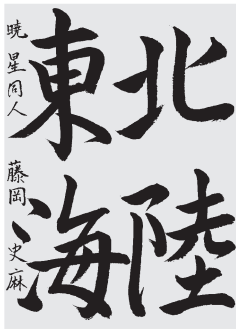 北陸
東海
暁星同人 藤岡史麻